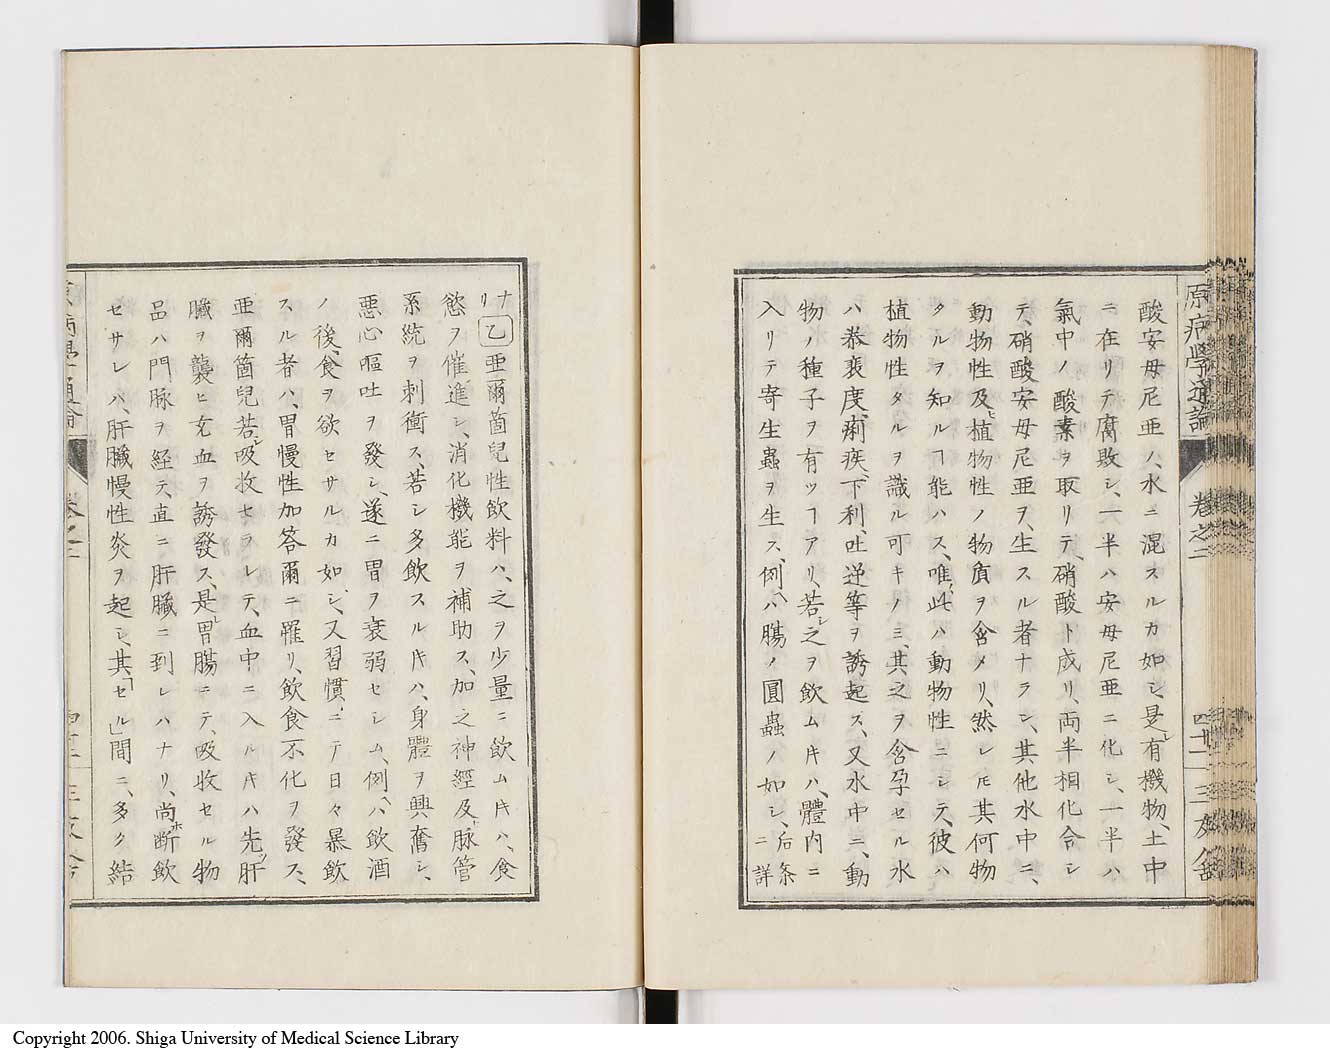 原病學通論
卷之二
四十二
三友舍
酸安母尼亜ハ、水ニ混スルカ如シ、是レ有機物、土中
ニ在リテ腐敗シ、一半ハ安母尼亜ニ化シ、一半ハ
氣中ノ酸素ヲ取リテ、硝酸ト成リ、両半相化合シ
テ、硝酸安母尼亜ヲ、生スル者ナラン、其他水中ニ、
動物性及ヒ植物性ノ物質ヲ含メリ、然レ𪜈其何物
タルヲ知ルヿ能ハス、唯、此ハ動物性ニシテ、彼ハ
植物性タルヲ識ル可キノミ、其之ヲ含孕セル水
ハ恭裵度、痢疾、下利、吐逆等ヲ誘起ス、又水中ニ、動
物ノ種子ヲ有ツヿアリ、若シ之ヲ飲ムキハ、體内ニ
入リテ寄生蟲ヲ生ス、例ヘハ膓ノ圓蟲ノ如シ、后条
ニ詳
ナリ
乙 亜爾箇兒性飲料ハ、之ヲ少量ニ飲ムキハ、食
慾ヲ催進シ、消化機能ヲ補助ス、加之神經及ヒ脉管
系統ヲ刺衝ス、若シ多飲スルキハ、身體ヲ興奮シ、
悪心嘔吐ヲ發シ、遂ニ胃ヲ衰弱セシム、例ヘハ飲酒
ノ後、食ヲ欲セサルカ如シ、又習慣ニテ日々暴飲
スル者ハ、胃慢性加答爾ニ罹リ、飲食不化ヲ發ス、
亜爾箇兒若シ吸收セラレテ、血中ニ入ルキハ先ツ肝
臓ヲ襲ヒ充血ヲ誘發ス、是レ胃腸ニテ、吸收セル物
品ハ門脉ヲ経テ、直ニ肝臓ニ到レハナリ、尚ホ断飲
セサレハ、肝臓慢性炎ヲ起シ、其「セル」間ニ、多ク結
卷之二
Copyright 2006. Shiga University of Medical Science Library